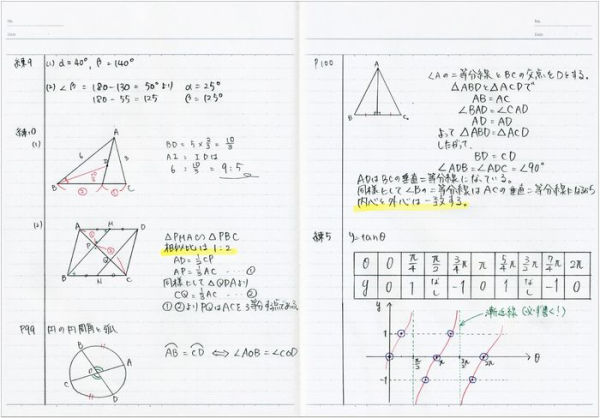 No.
Date
練9 (1) α=40°, β=140°
(2) ∠β = 180-130 = 50°より α=25°
180-55=125 β=125°
練10
(1)
A
6
3
I
B
D
C
②
①
BD = 5×2/3 = 10/3
AI : IDは
6 : 10/3 = 9:5
(2)
A
M
D
P
Q
B
N
C
相似比は 1:2
AP = 1/3 AC … ①
同様として △QDAより
CQ = 1/3 AC … ②
①②よりPQはACを3等分する点である
P99 円の中心角と弧
B
A
C
D
AB = CD ⇔ ∠AOB = ∠COD
No.
Date
P100
A
B
C
∠Aの二等分線とBCの交点をDとする。
△ABDと△ACDで
AB=AC
∠BAD=∠CAD
AD=AD
よって △ABD=△ACD
したがって、
BD=CD
∠ADB=∠ADC=∠90°
ADはBCの垂直二等分線になっている。
同様として∠Bの二等分線はACの垂直二等分線になるから
内心と外心は一致する。
練5 y=tanθ
θ 0 π/4 π/2 3/4π π 5/4π 3/2π 7/4π 2π
y 0 1 なし -1 0 1 なし -1 0
漸近線(必ず書く!)
y
1
-1
π/2
π
3/2π
2π
θ